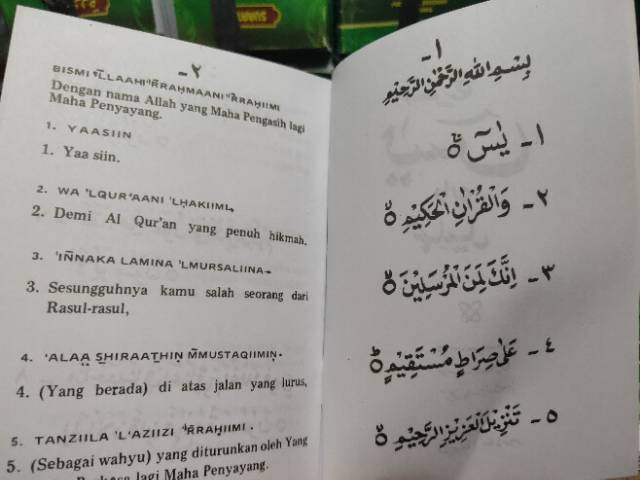 - ١
بِسْمِ اللهِ الرَّحْمٰنِ الرَّحِيْمِ
١ - يٰسٓ
٢ - وَالْقُرْاٰنِ الْحَكِيْمِ
٣ - اِنَّكَ لَمِنَ الْمُرْسَلِيْنَ
٤ - عَلٰى صِرَاطٍ مُسْتَقِيْمٍ
٥ - تَنْزِيْلَ الْعَزِيْزِ الرَّحِيْمِ
- ٢
BISMI 'LLAAHI 'RRAḤMAANI 'RRAḤIIMI
Dengan nama Allah yang Maha Pengasih lagi
Maha Penyayang.
1. YAASIIN
1. Yaa siin.
2. WA 'LQUR'AANI 'LḤAKIIMI,
2. Demi Al Qur'an yang penuh hikmah.
3. 'IÑNAKA LAMINA 'LMURSALIINA-
3. Sesungguhnya kamu salah seorang dari
Rasul-rasul,
4. 'ALAA SHIRAATHIN MMUSTAQIIMIN.
4. (Yang berada) di atas jalan yang lurus,
5. TANZIILA 'L'AZIIZI 'RRAḤIIMI.
5. (Sebagai wahyu) yang diturunkan oleh Yang
lagi Maha Penyayang.